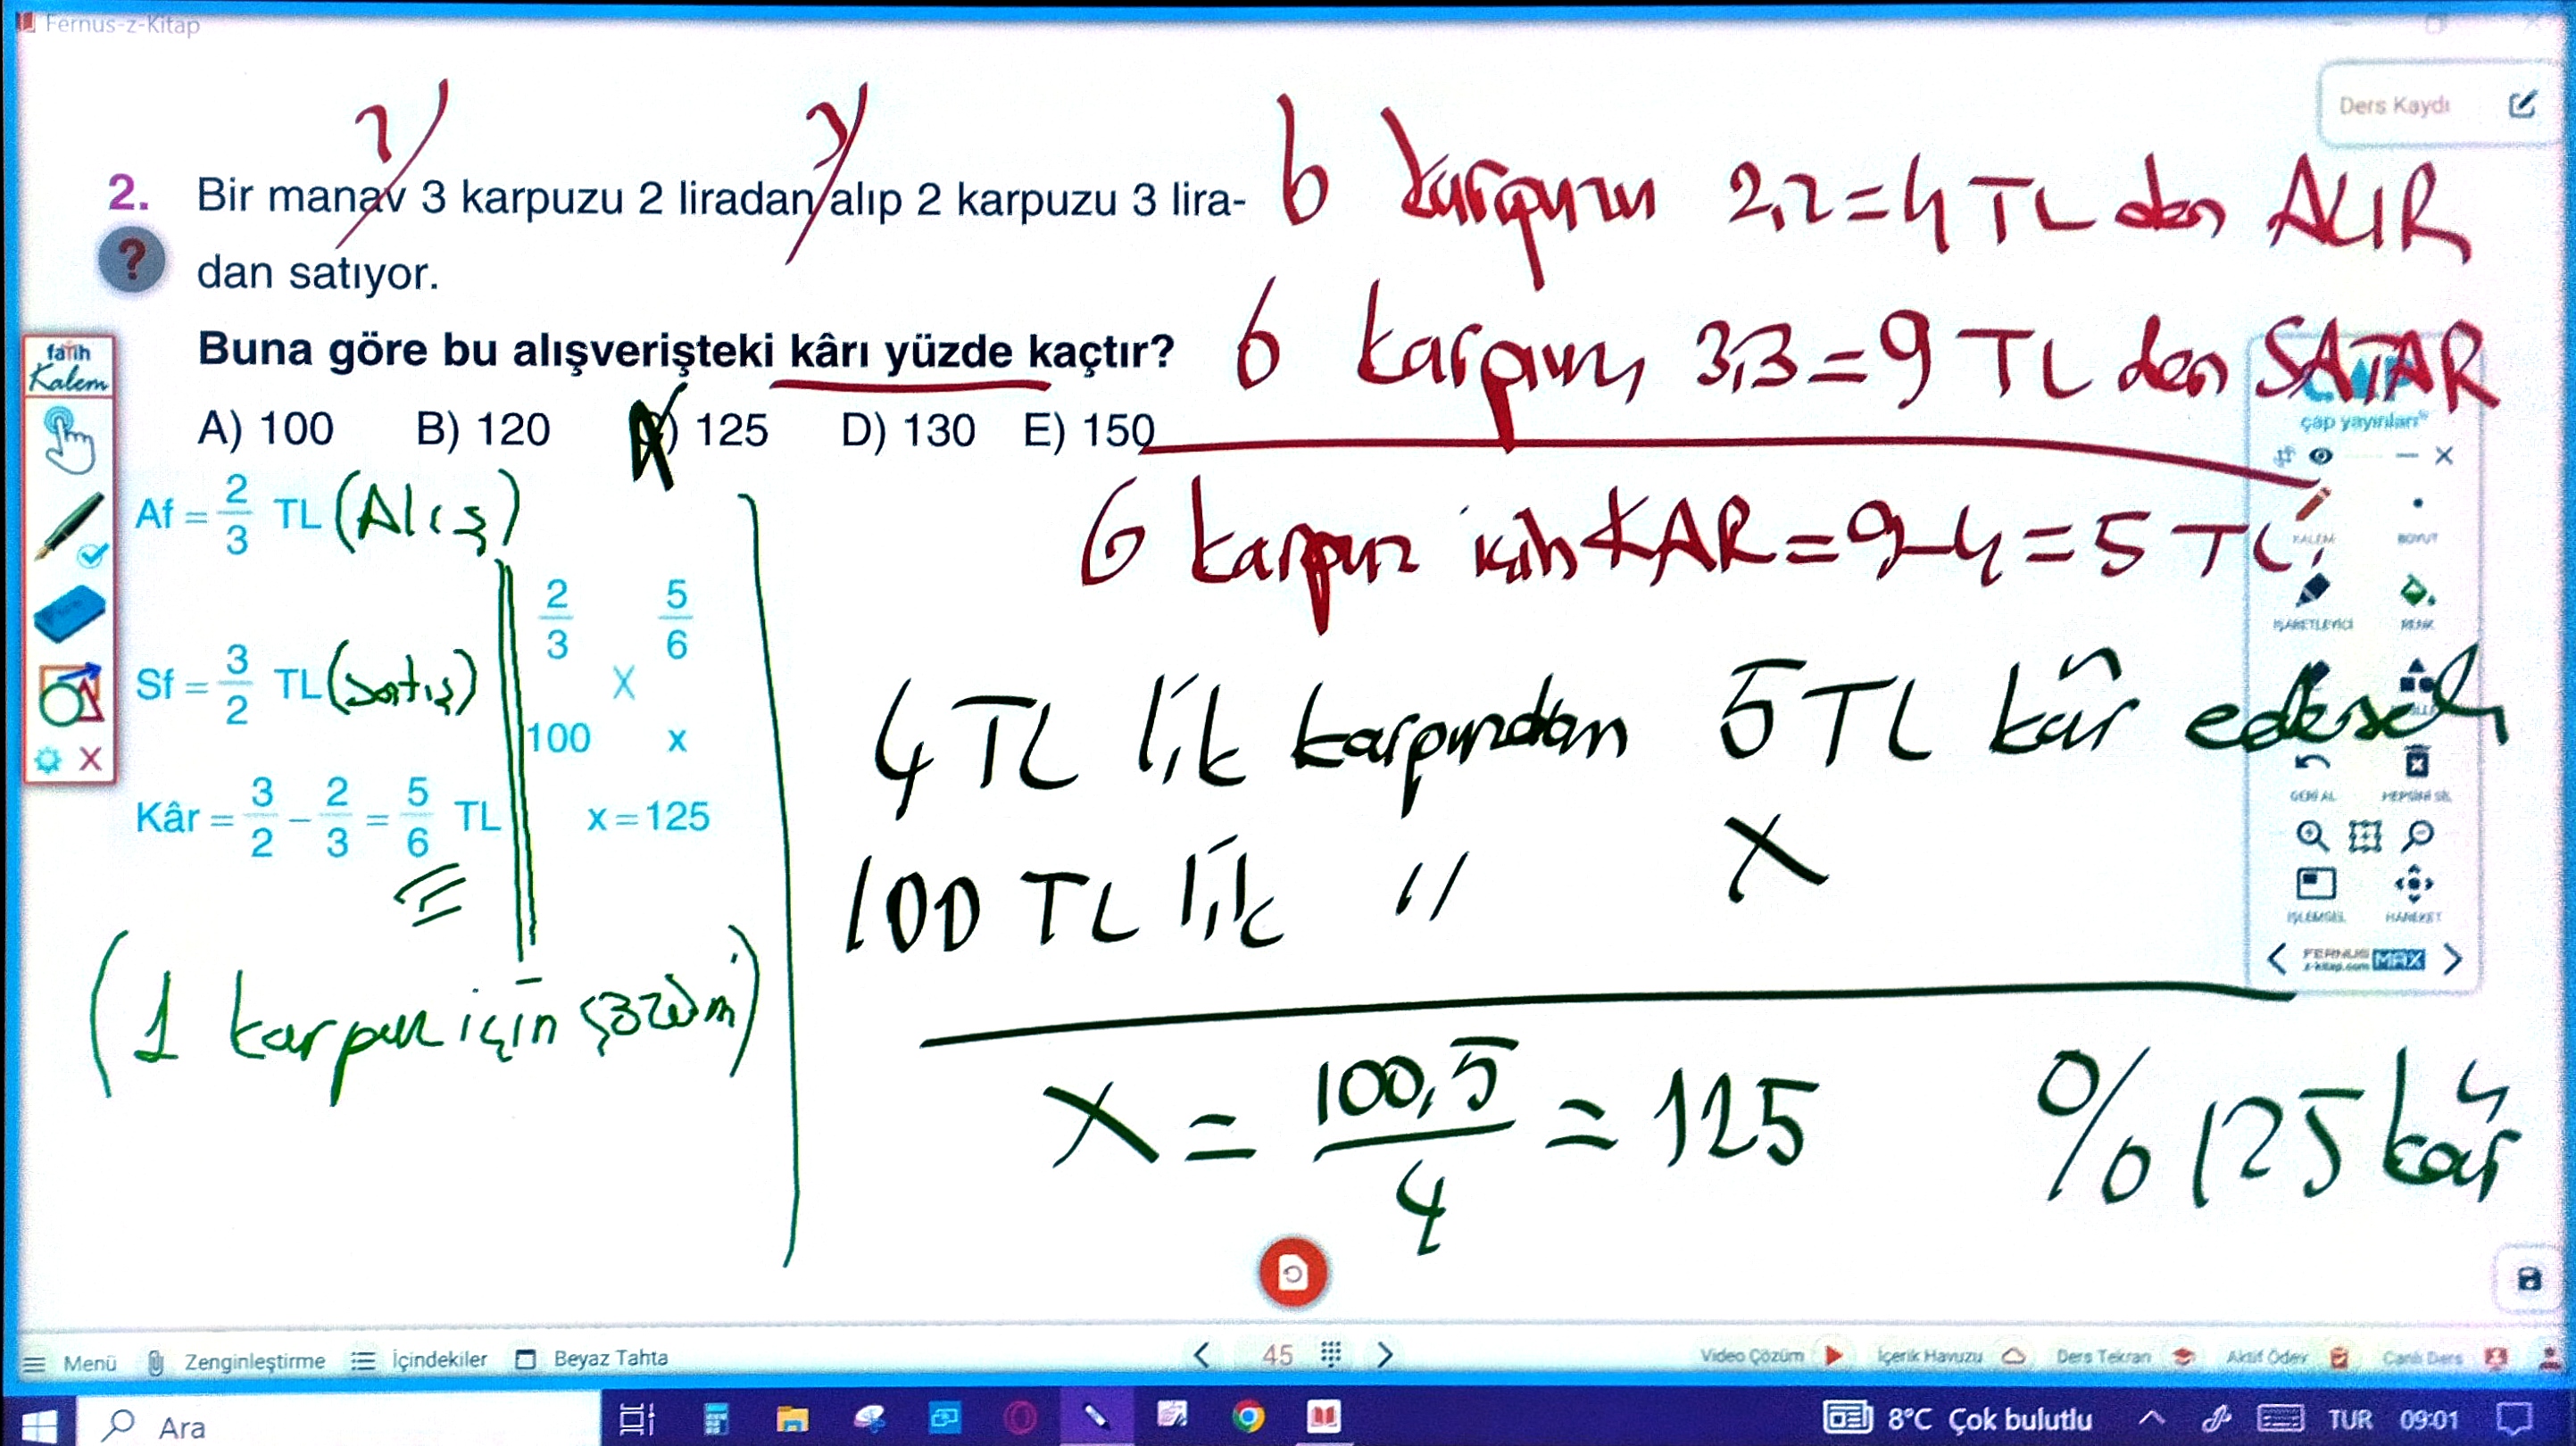 Fernus-z-Kitap
Ders Kaydı
2. Bir manav 3 karpuzu 2 liradan alıp 2 karpuzu 3 lira-
dan satıyor.
Buna göre bu alışverişteki kârı yüzde kaçtır?
A) 100 B) 120 C) 125 D) 130 E) 150
6 karpuzu 2.2=4 TL den ALIR
6 karpuzu 3.3=9 TL den SATAR
6 karpuz için KAR=9-4=5 TL
fatih
Kalem
çap yayınları
Af = 2/3 TL (Alış)
Sf = 3/2 TL (Satış)
Kâr = 3/2 - 2/3 = 5/6 TL
2/3 5/6
X
100 x
x = 125
(1 karpuz için çözüm)
4 TL lik karpuzdan 5 TL kâr ederse
100 TL lik " X
X = 100.5/4 = 125 %125 kâr
KALEM BOYUT
İŞARETLEYİCİ RENK
GERİ AL HEPSİNİ SİL
İŞLEMSEL HAREKET
FERNUS
z-kitap.com MAX
Menü Zenginleştirme İçindekiler Beyaz Tahta 45 Video Çözüm İçerik Havuzu Ders Tekrarı Aktif Ödev Canlı Ders
Ara 8°C Çok bulutlu TUR 09:01